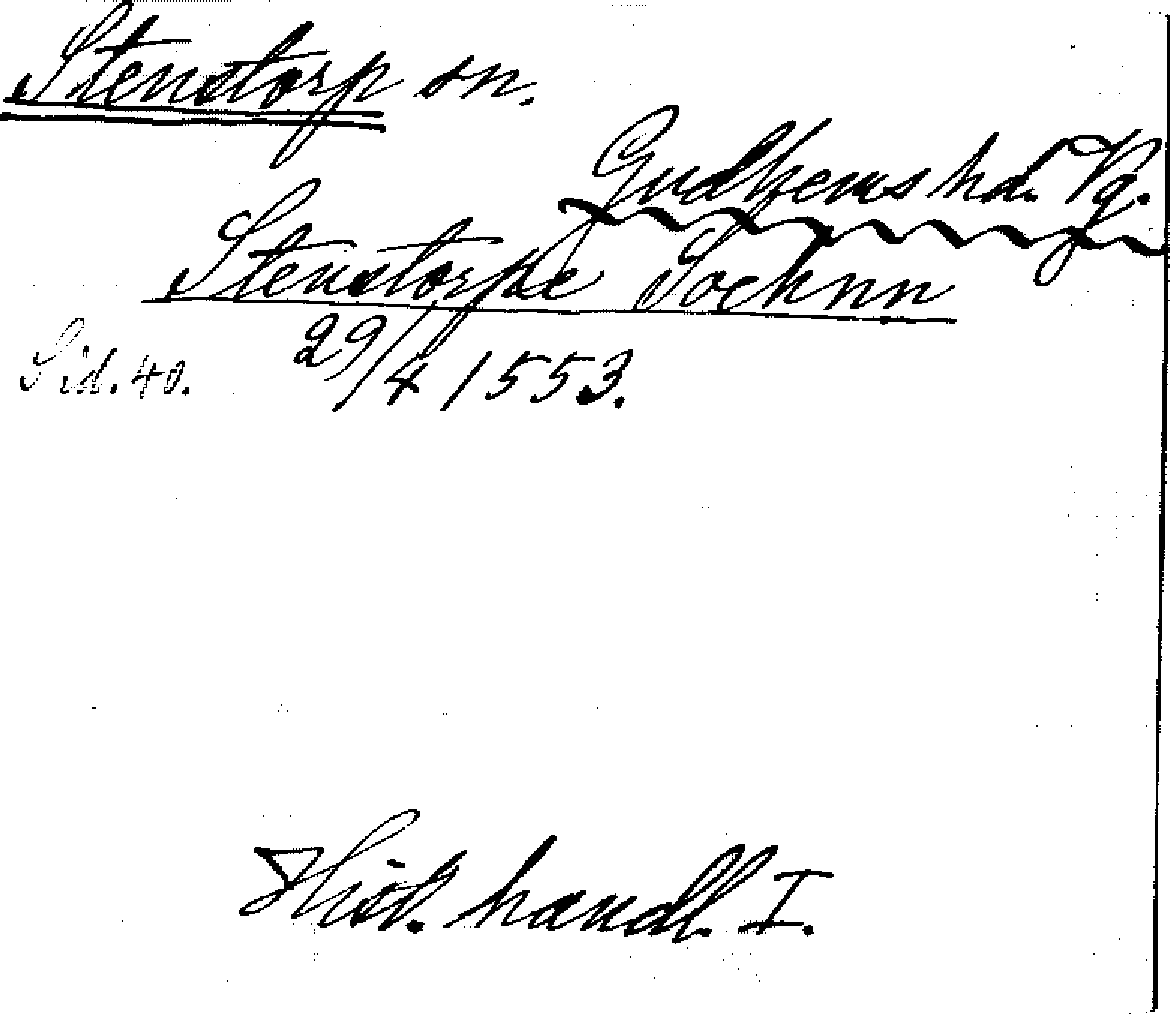 Stenstorp sn.
Gudhems hd. Vg.
Stenstorpe Sochnn
Sid. 40. 29/4 1553.
Hist. handl. I.